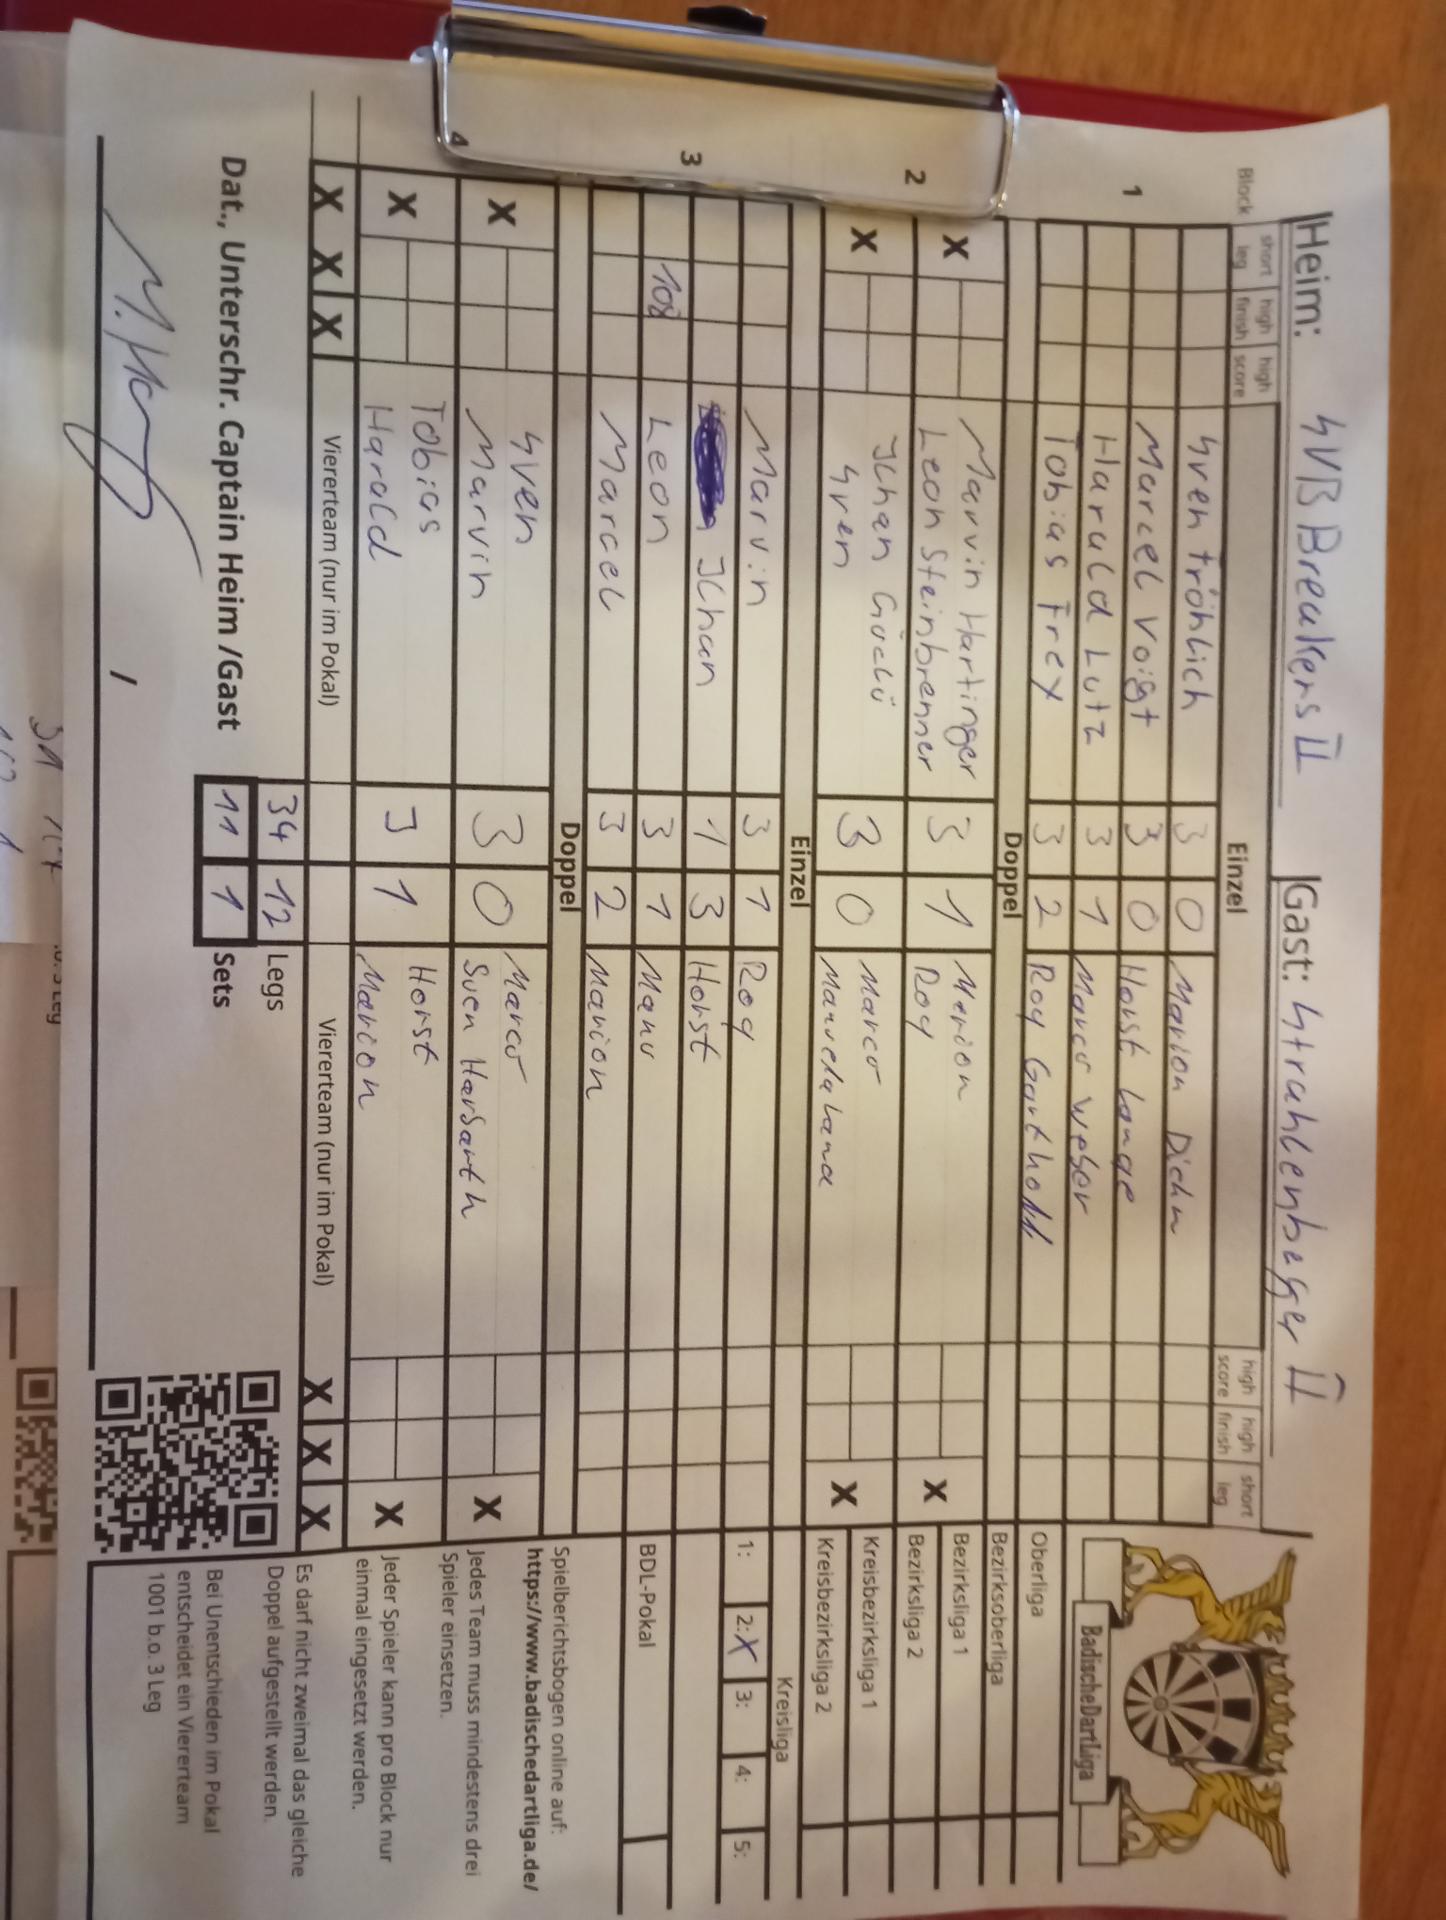 Heim: SVB Breakers II Gast: Strahlenberger II
Block short leg high finish high score Einzel high score high finish short leg
1
Sven Fröhlich 3 0 Marion Diehn
Marcel Voigt 3 0 Horst Lange
Harald Lutz 3 1 Marco Weber
Tobias Frey 3 2 Roy
Doppel
2
X Marvin Hartinger 3 1 Marion X
Leon Steinbrenner Roy
X Ilhan Güclü 3 0 Marco X
Sven
Einzel
3
Marvin 3 1 Roy
Ilhan 1 3 Horst
108 Leon 3 1 Manu
Marcel 3 2 Marion
Doppel
4
X Sven 3 0 Marco X
Marvin Sven
X Tobias 3 1 Horst X
Harald Marion
X X X Viererteam (nur im Pokal) Viererteam (nur im Pokal) X X X
34 12 Legs
11 1 Sets
Dat., Unterschr. Captain Heim /Gast
/
BadischeDartLiga
Oberliga
Bezirksoberliga
Bezirksliga 1
Bezirksliga 2
Kreisbezirksliga 1
Kreisbezirksliga 2
Kreisliga
1: 2: X 3: 4: 5:
BDL-Pokal
Spielberichtsbogen online auf:
https://www.badischedartliga.de/
Jedes Team muss mindestens drei
Spieler einsetzen.
Jeder Spieler kann pro Block nur
einmal eingesetzt werden.
Es darf nicht zweimal das gleiche
Doppel aufgestellt werden.
Bei Unentschieden im Pokal
entscheidet ein Viererteam
1001 b.o. 3 Leg